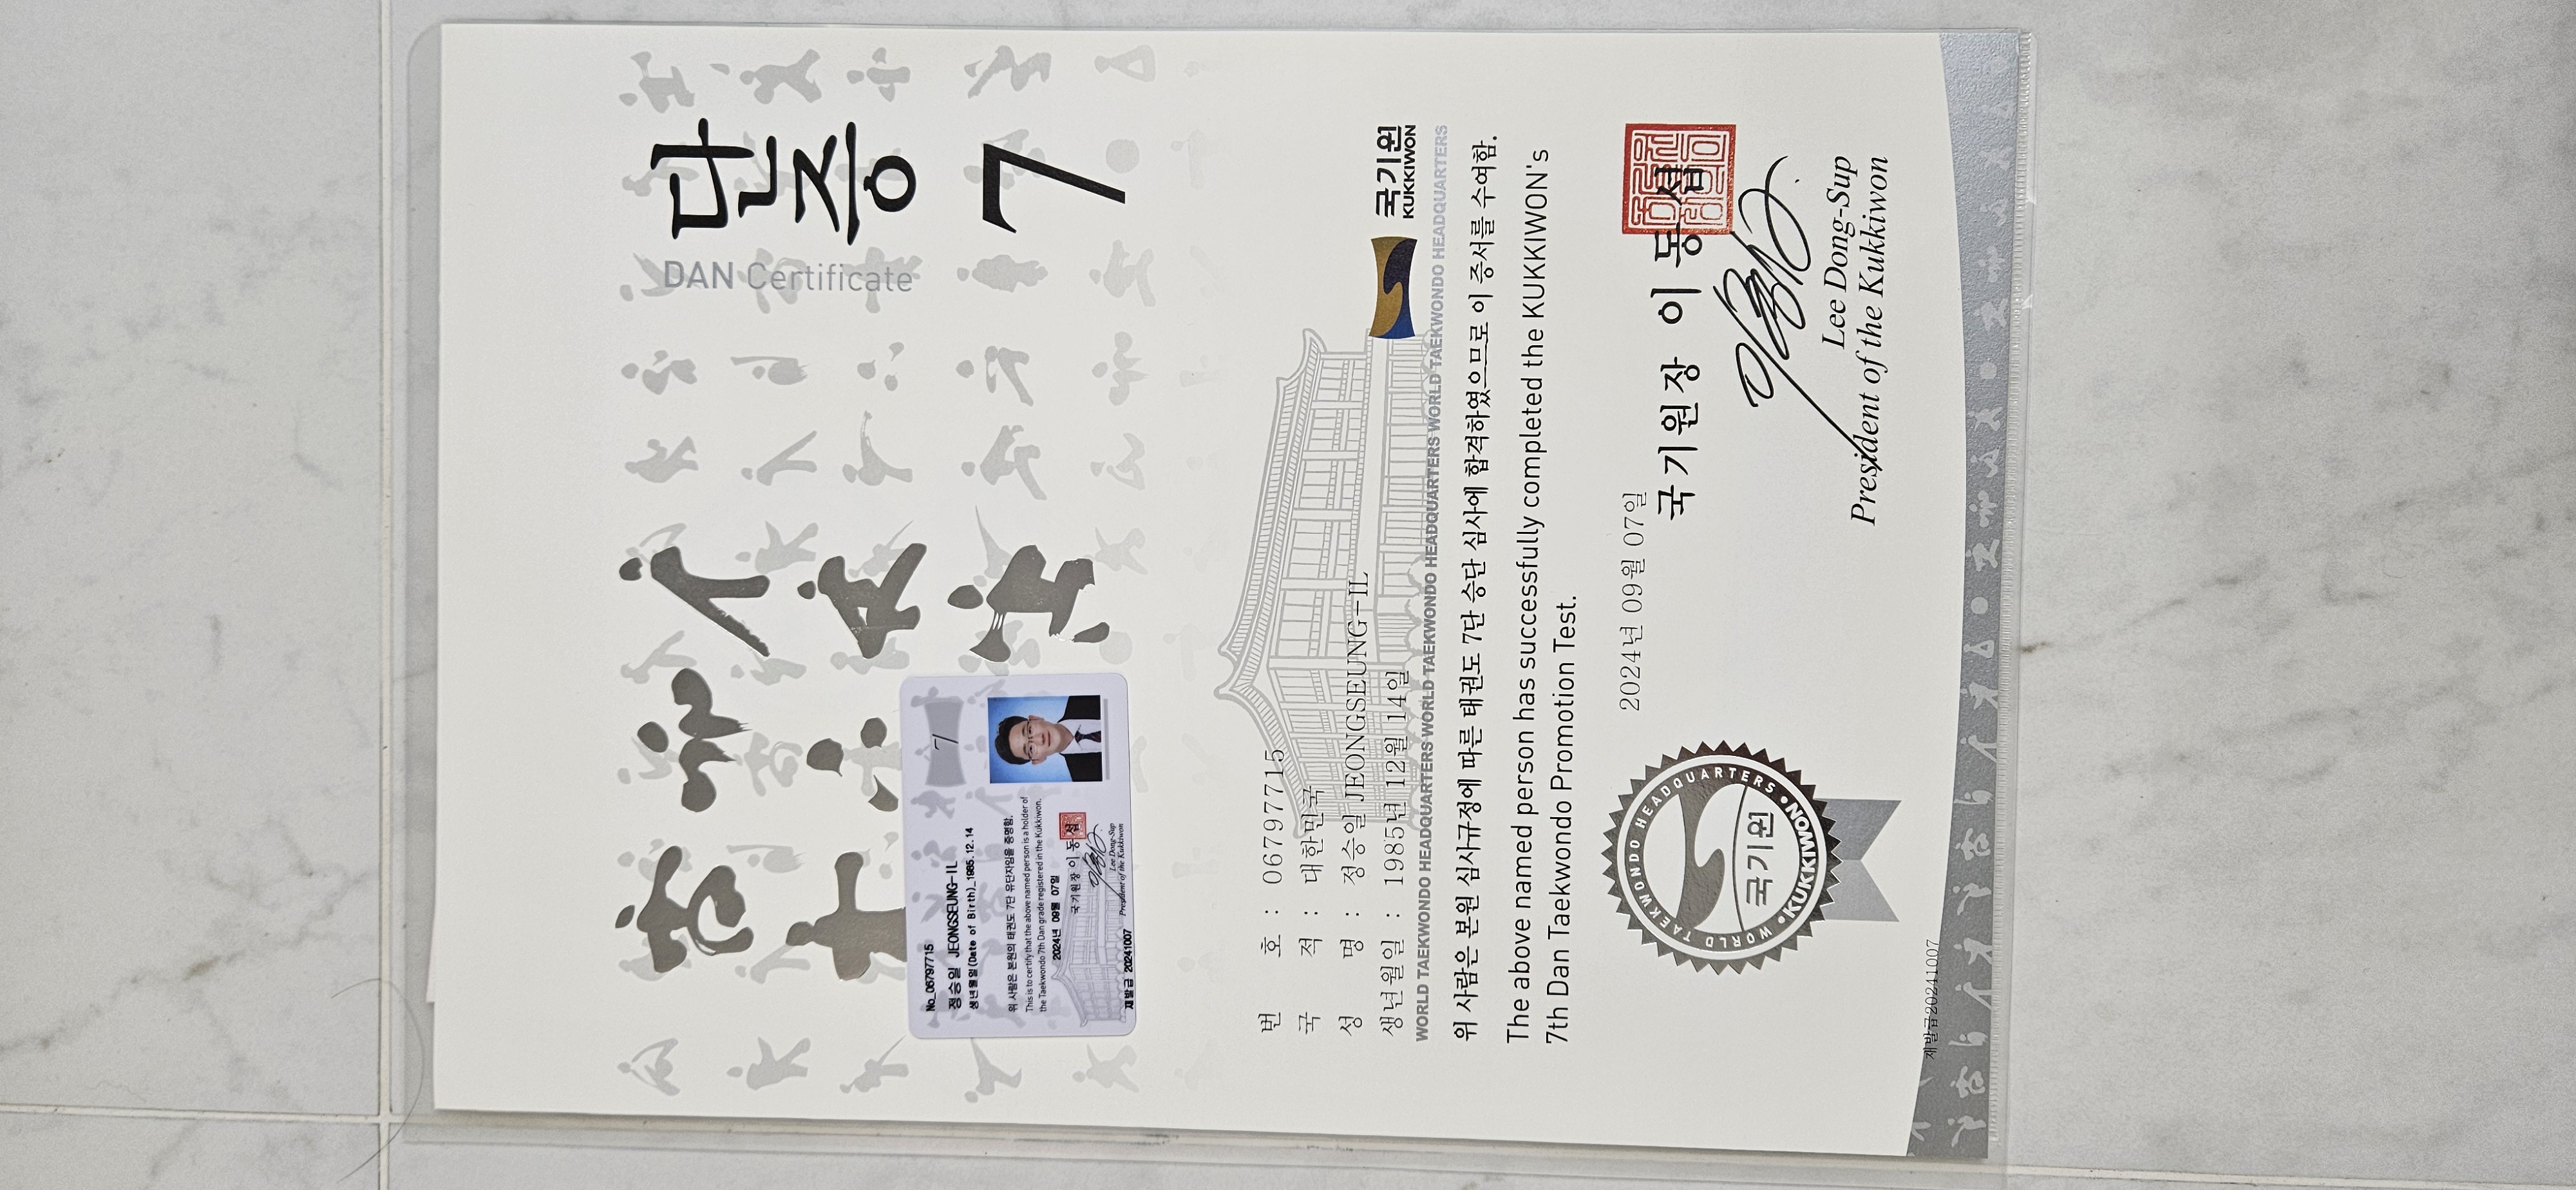 단증
DAN Certificate
7
No_06797715
정승일 JEONGSEUNG-IL
생년월일(Date of Birth)_1985.12.14
위 사람은 본원의 태권도 7단 유단자임을 증명함.
This is to certify that the above named person is a holder of
the Taekwondo 7th Dan grade registered in the Kukkiwon.
2024년 09월 07일
국기원장 이동섭
Lee Dong-Sup
President of the Kukkiwon
재발급 20241007
7
번 호 : 06797715
국 적 : 대한민국
성 명 : 정승일 JEONGSEUNG-IL
생년월일 : 1985년 12월 14일
국기원
KUKKIWON
WORLD TAEKWONDO HEADQUARTERS WORLD TAEKWONDO HEADQUARTERS WORLD TAEKWONDO HEADQUARTERS WORLD TAEKWONDO HEADQUARTERS
위 사람은 본원 심사규정에 따른 태권도 7단 승단 심사에 합격하였으므로 이 증서를 수여함.
The above named person has successfully completed the KUKKIWON's
7th Dan Taekwondo Promotion Test.
2024년 09월 07일
국기원장 이동섭
Lee Dong-Sup
President of the Kukkiwon
WORLD TAEKWONDO HEADQUARTERS
국기원
•KUKKIWON•
재발급20241007